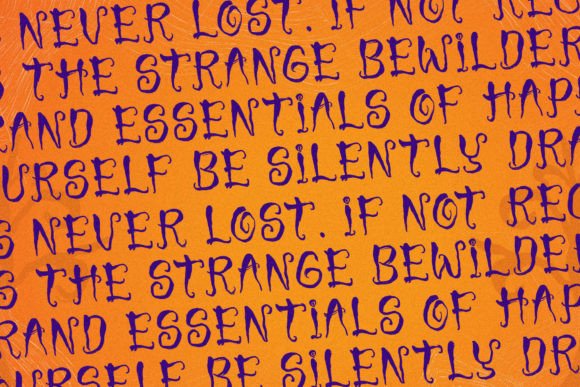 NEVER LOST. IF NOT REC
THE STRANGE BEWILDER
RAND ESSENTIALS OF HAP
URSELF BE SILENTLY DRA
S NEVER LOST. IF NOT REC
S THE STRANGE BEWILDER
RAND ESSENTIALS OF HAP
URSELF BE SILENTLY DRA